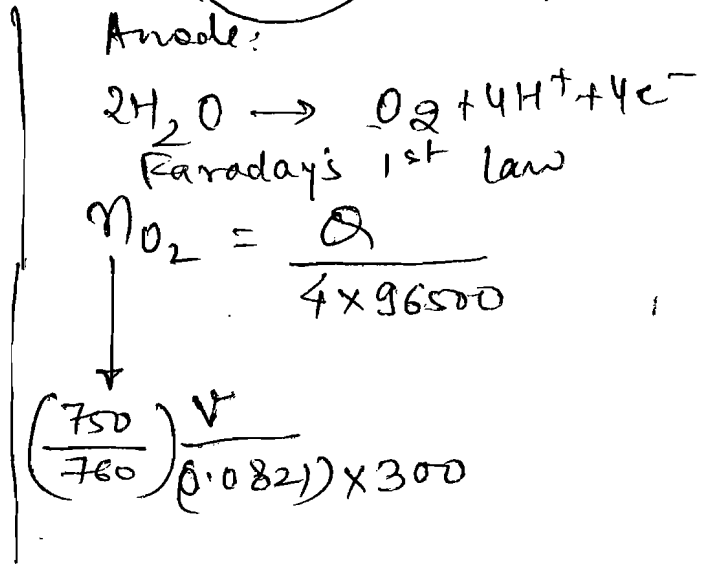 Anode:
2H₂O → O₂ + 4H⁺ + 4e⁻
Faraday's 1st law
n_O₂ = Q / (4 × 96500)
(750/760) V / ((0.0821) × 300)